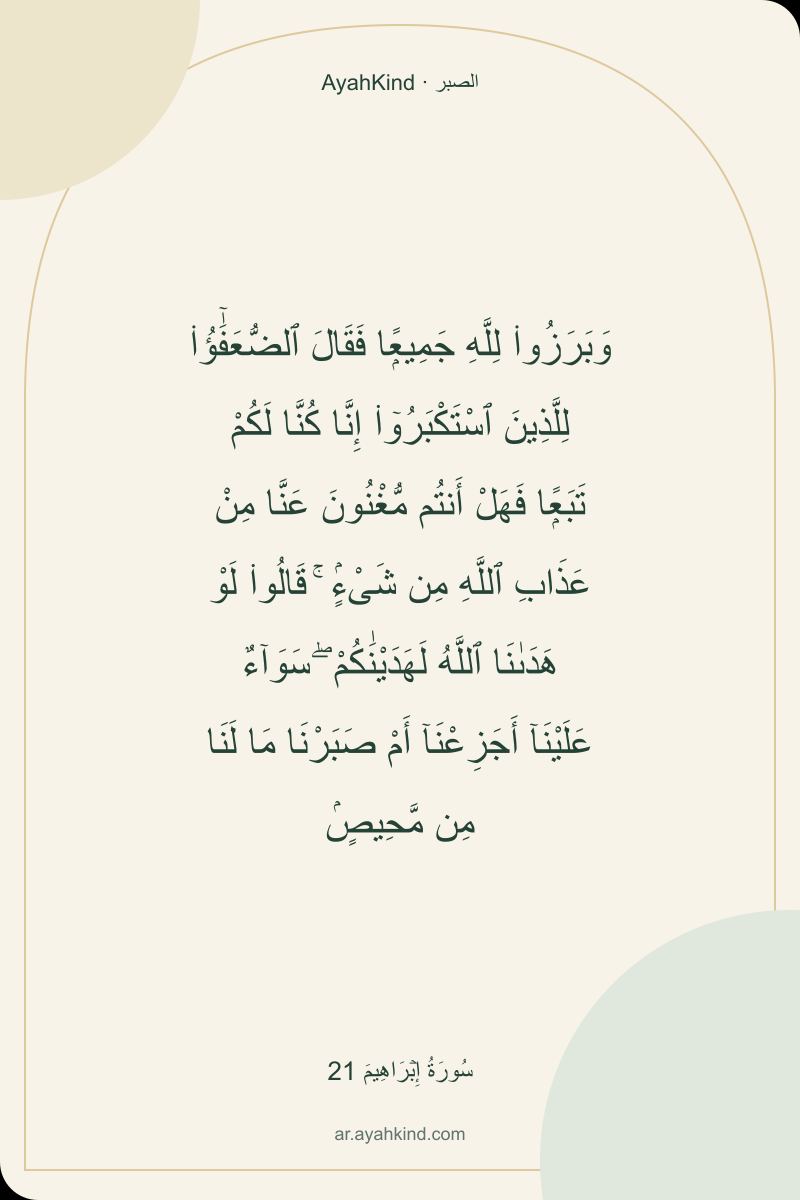 AyahKind · الصبر
وَبَرَزُوا۟ لِلَّهِ جَمِيعًۭا فَقَالَ ٱلضُّعَفَـٰٓؤُا۟
لِلَّذِينَ ٱسْتَكْبَرُوٓا۟ إِنَّا كُنَّا لَكُمْ
تَبَعًۭا فَهَلْ أَنتُم مُّغْنُونَ عَنَّا مِنْ
عَذَابِ ٱللَّهِ مِن شَىْءٍۢ ۚ قَالُوا۟ لَوْ
هَدَىٰنَا ٱللَّهُ لَهَدَيْنَـٰكُمْ ۖ سَوَآءٌ
عَلَيْنَآ أَجَزِعْنَآ أَمْ صَبَرْنَا مَا لَنَا
مِن مَّحِيصٍۢ
سُورَةُ إِبۡرَاهِيمَ 21
ar.ayahkind.com